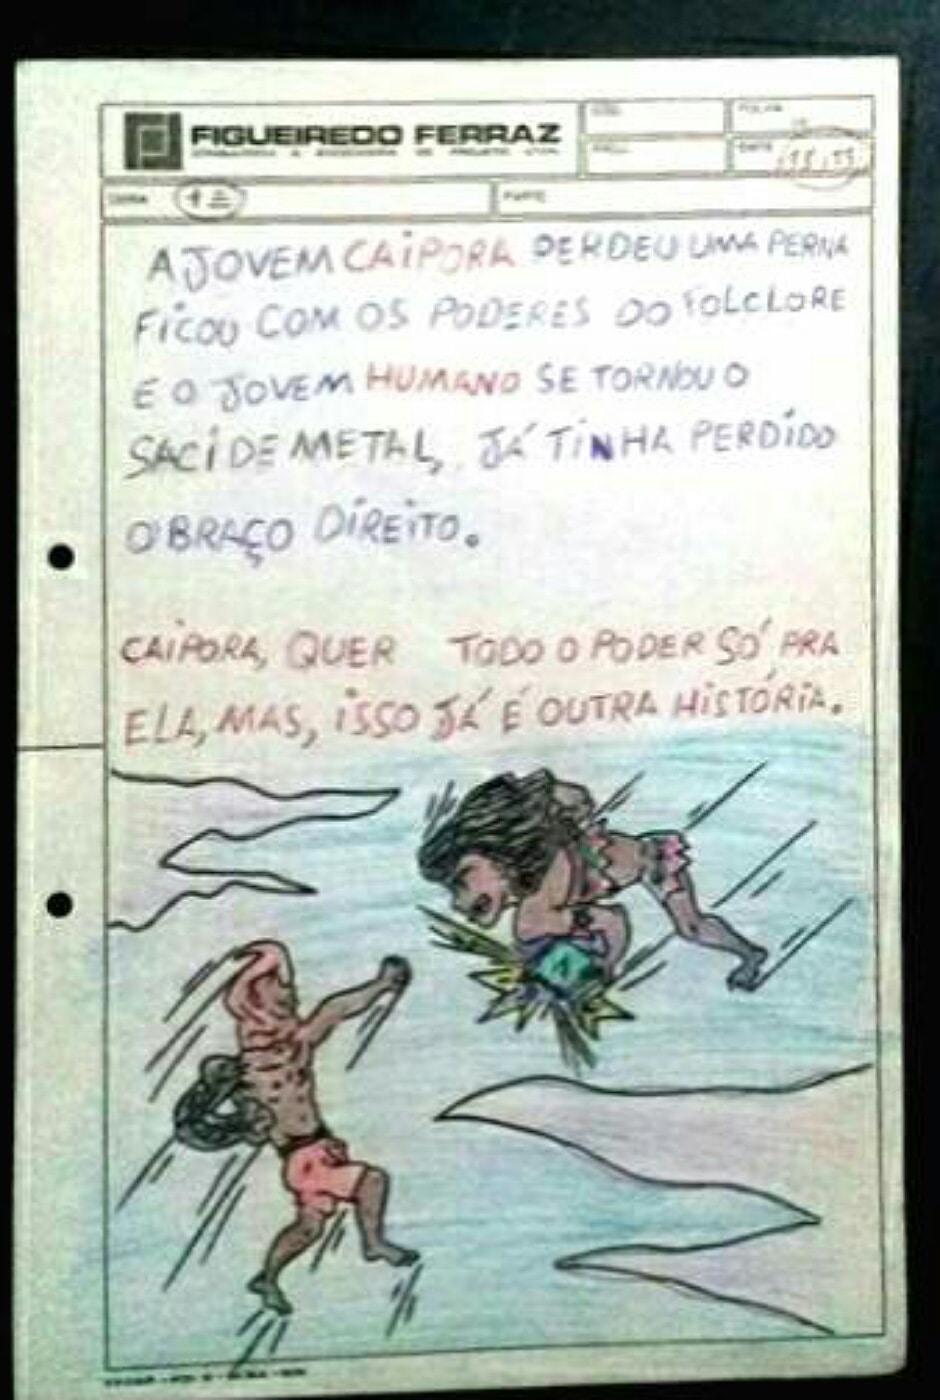 FIGUEIREDO FERRAZ
FOLHA
DATA
OBRA
PARTE
A JOVEM CAIPORA PERDEU UMA PERNA
FICOU COM OS PODERES DO FOLCLORE
E O JOVEM HUMANO SE TORNOU O
SACI DE METAL, JÁ TINHA PERDIDO
O BRAÇO DIREITO.
CAIPORA, QUER TODO O PODER SÓ PRA
ELA, MAS, ISSO JÁ É OUTRA HISTÓRIA.